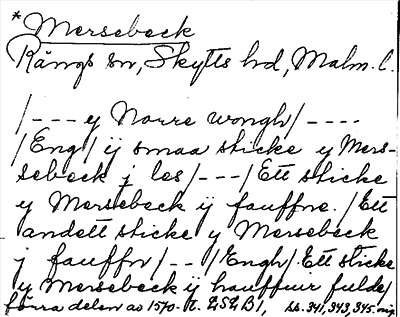 *Mersebeck
Rängs sn, Skytts hd, Malm. l.
/--- y Norre wongh/----
/Eng/ ij smaa sticke y Mers-
sebeck j les /---/Ett sticke
y Mersebeck ij fauffne. /Ett
andett sticke y Mersebeck
j fauffn/--/Engh/. Ett sticke
y Mersebeck ij hauffuir fulde/
förra delen av 1570-t. LSLB1, ss. 341, 343, 345.